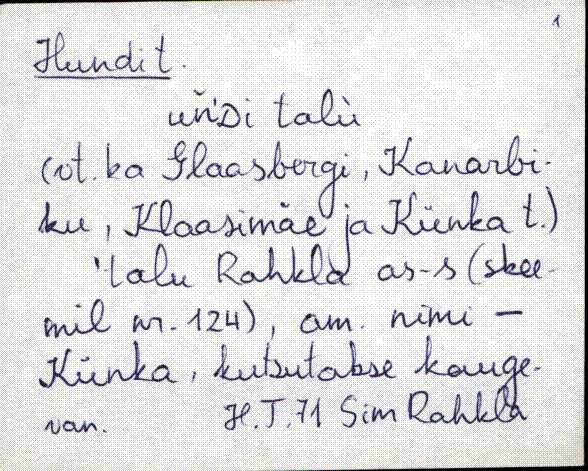 1
Hundi t.
uǹ'ᴅi talù
(vt. ka Glaasbergi, Kanarbi-
ku, Klaasimäe ja Künka t.)
'talu Rahkla as-s (skee-
mil nr. 124), am. nimi -
Künka, kutsutakse kauge-
van. H.J.71 Sim Rahkla